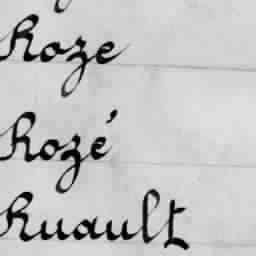 Roze
Rozé
Ruault